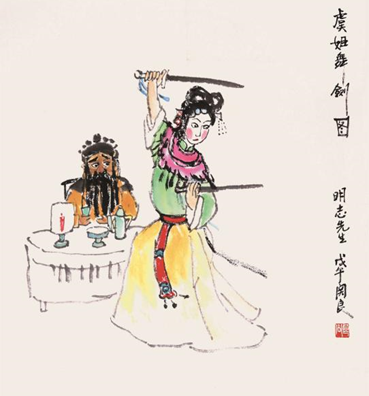 虞姬舞剑图
明志先生 戊午 关良